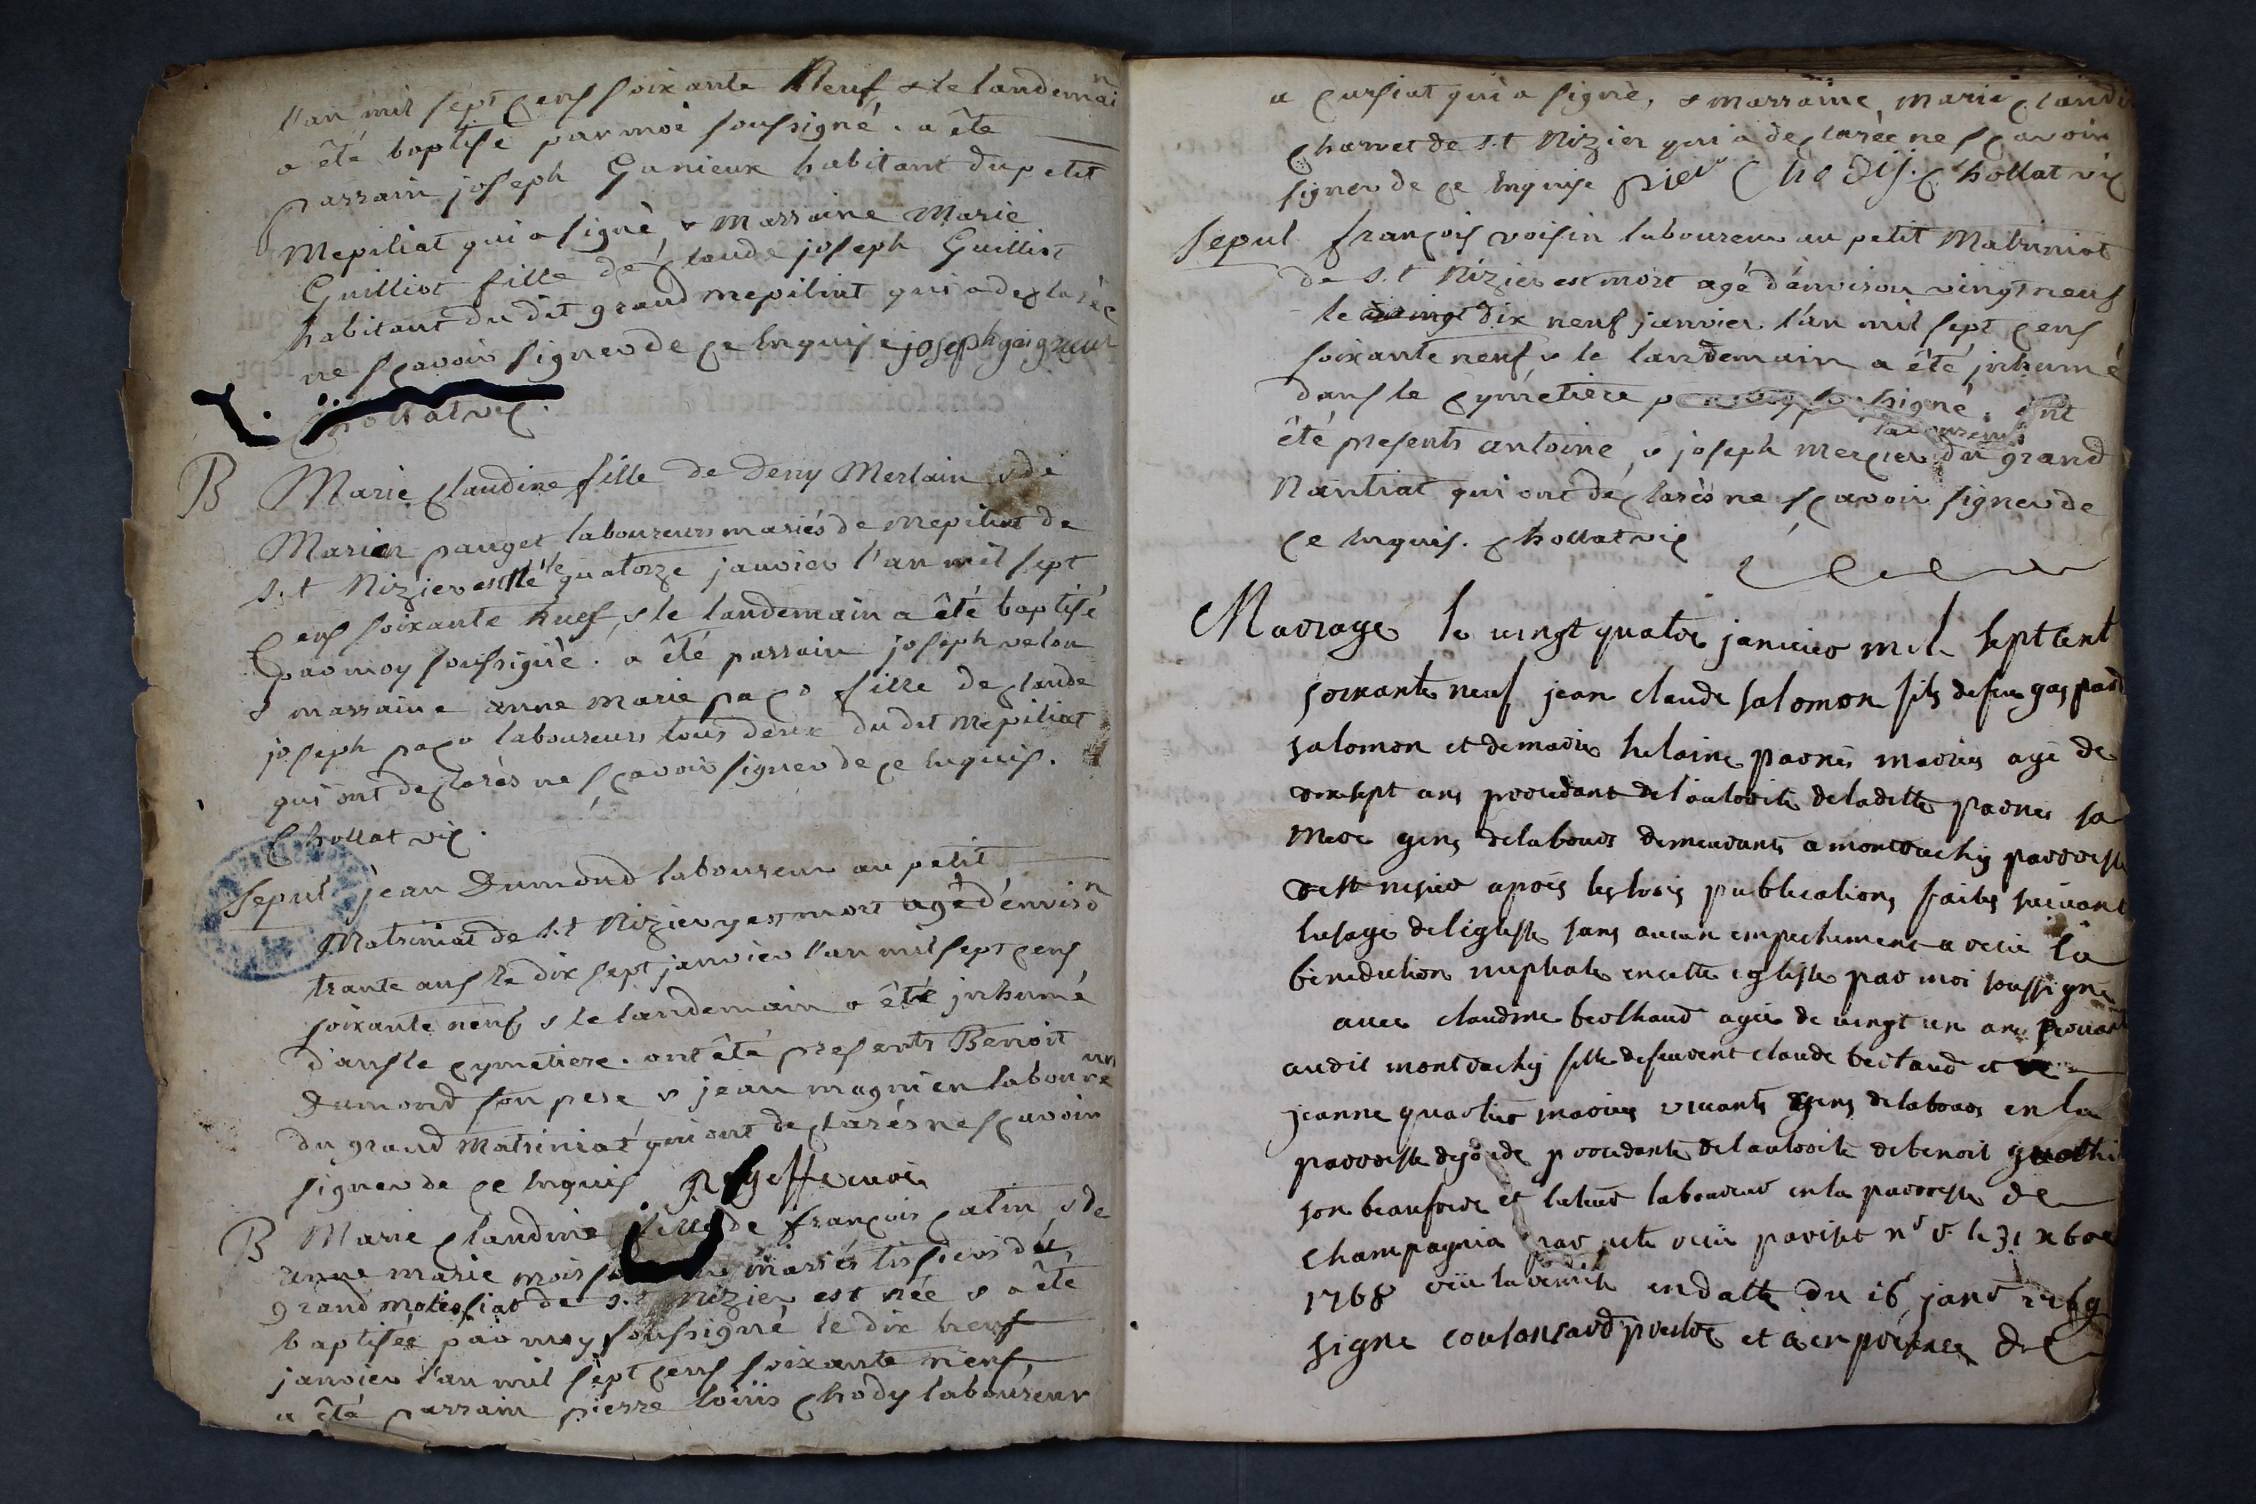 l'an mil sept çens soixante Neuf & le landemain
a êté baptisé par moi soussigné. a êté
parrain joseph Ganieux habitant du petit
Mepiliat qui a signè, & Marraine Marie
Guilliot fille de çlaude joseph Guilliot
habitant du dit grand mepiliat qui a deçlarée
ne sçavoir signer de çe Inquise joseph
Chollat viç.
B Marie çlaudine fille de deny Merlain & de
Marie pauget laboureurs mariés de mepiliat de
s.t Nizier est Né le quatorze janvier l'an mil sept
çens soixante neuf, & le landemain a êté baptisé
par moy soussigné. a êté parrain joseph velon
& marraine anne marie paço fille de çlaude
joseph paço laboureurs tous deux du dit Mepiliat
qui ont deçlarés ne sçavoir signer de çe Inquis.
Chollat viç.
Sepul jean Dumond laboureur au petit
Matriniat de s.t Nizier y est mort agé d'environ
trante ans le dix sept janvier l'an mil sept çens
soixante neuf & le landemain a êté jnhumé
dans le çymetiere. ont êté presents Benoit
Dumond son pere & jean magnien laboureur
du grand Matriniat qui ont deçlarés ne sçavoir
signer de çe Inquis
B Marie çlaudine fille de françois çatin & de
anne marie mariés tissiers du
grand de s.t Nizier est née & a êté
baptisée par moy soussigné le dix neuf
janvier l'an mil sept çens soixante neuf,
a êté parrain pierre loüis çhody laboureur
a çursiat qui a signè, & marraine marie çlaudine
çharvet de s.t Nizier qui a deçlarée ne sçavoir
signer de çe Inquise pier Chody. çhollat viç
Sepul françois voisin laboureur au petit Matriniat
de s.t Nizier est mort agé d'environ vingt neuf
le dix neuf janvier l'an mil sept çens
soixante neuf & le landemain a êté jnhumé
dans le çymetiere par moy soussigné. ont
êté presents antoine, & joseph merçier laboureurs du grand
Nantiat qui ont deçlarés ne sçavoir signer de
çe Inquis. çhollat viç
Mariage le vingt quatre janvier mil sept cent
soixante neuf jean claude salomon fils de feu gaspard
salomon et de marie helaine mariés agé de
sept ans procedant de l'autorité de la ditte sa
mere gens de labours demeurants a montrachy parroisse
de st nisier après les trois publications faites suivant
lusage de leglise sans aucun empechement a recu la
benediction nuptiale en cette eglise par moi soussigné
avec claudine agée de vingt un ans
audit montrachy fille de claude et
jeanne mariés vivants gens de labours en la
parroisse procedante de l'autorité de benoit
son beaufrere et tuteur laboureur en la parroisse de
champagnia par acte recu n.re le 31 xbre
1768 vu la remise en datte du 16 janr 1769
signé prestre et a en présence de